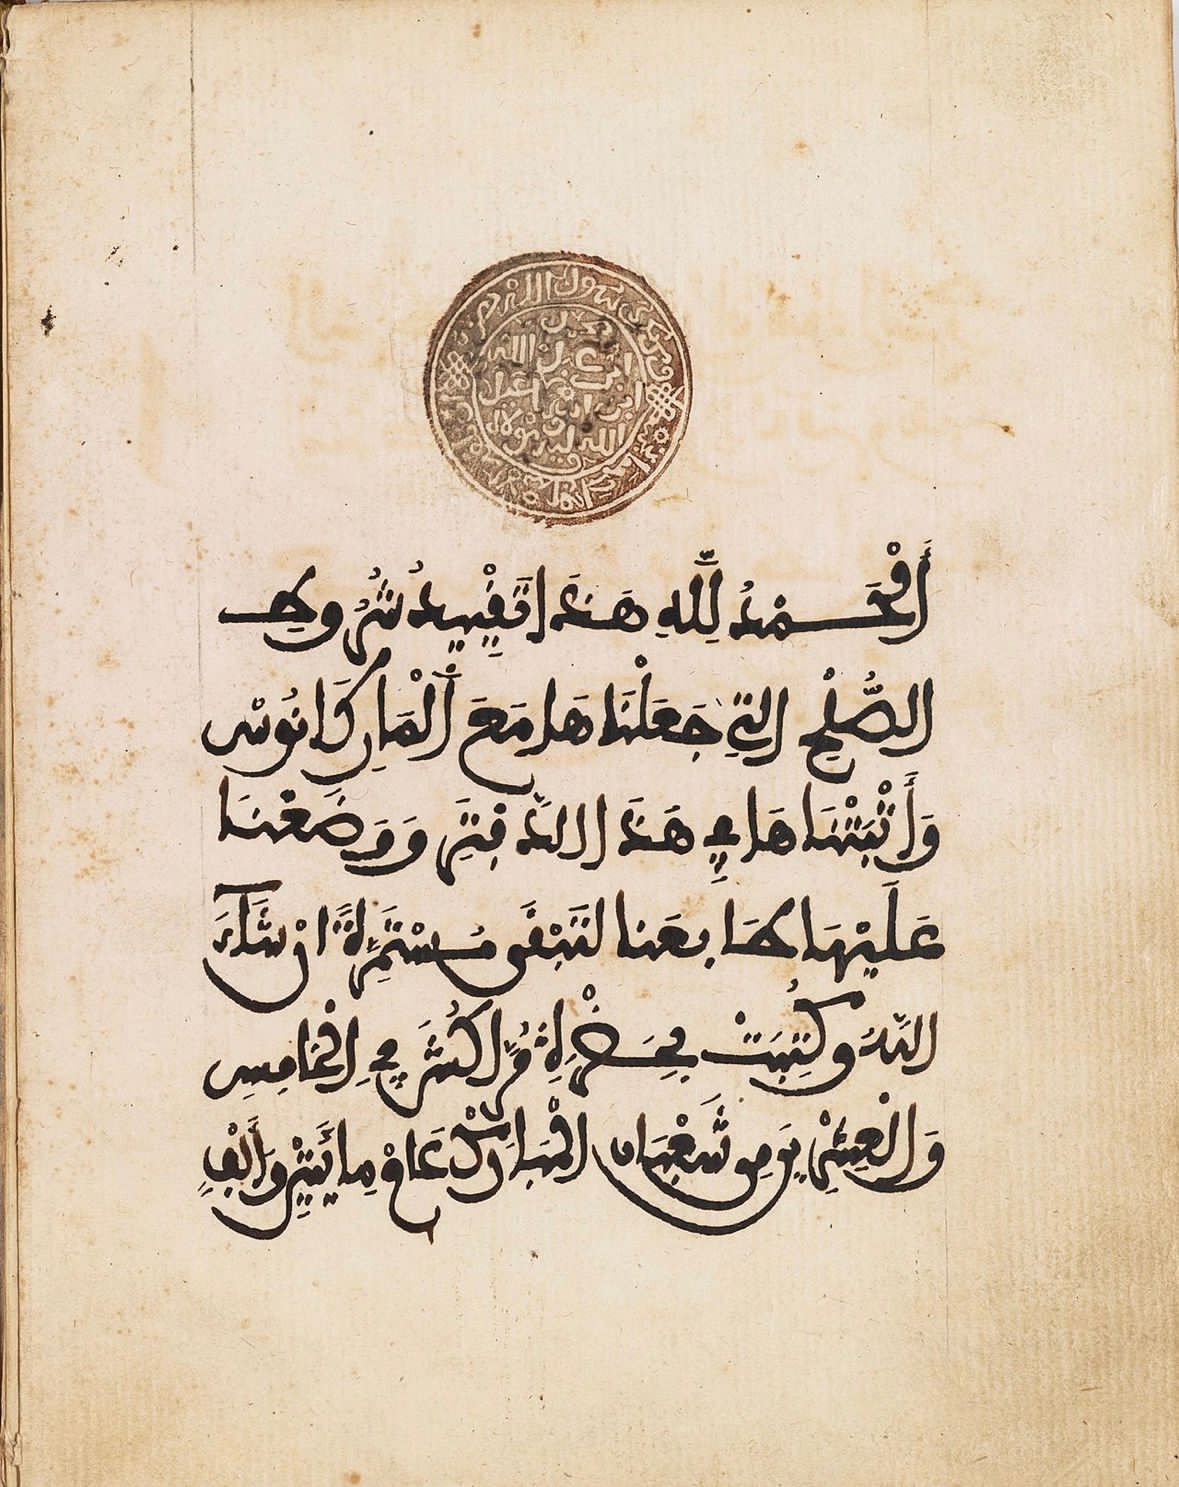 الحمد لله هذا تقييد شروط
الصلح التي جعلناها مع الماركانوس
وأثبتناها في هذا الدفتر ووضعنا
عليها طابعنا لتبقى مستمرة ان شاء
الله وكتبت بحضرة مراكش في الخامس
والعشرين من شعبان المبارك عام مائتين وألف